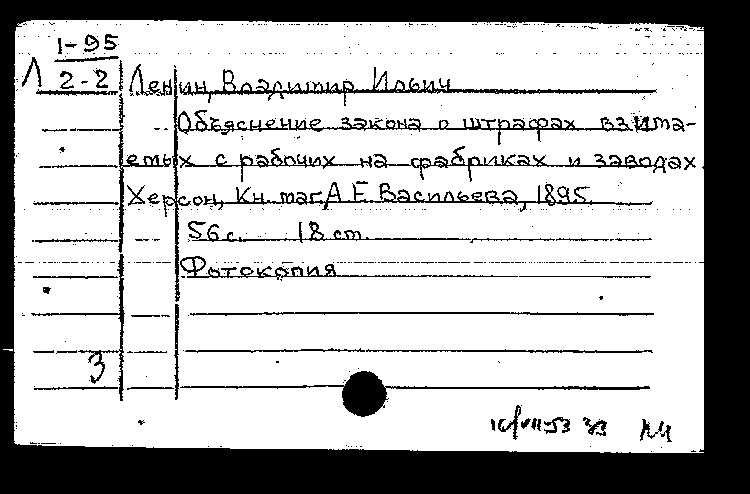 1-95
Л 2-2 Ленин, Владимир Ильич
Объяснение закона о штрафах взима-
емых с рабочих на фабриках и заводах.
Херсон, Кн. маг. А. Е. Васильева, 1895.
56 с. 18 cm.
Фотокопия
3